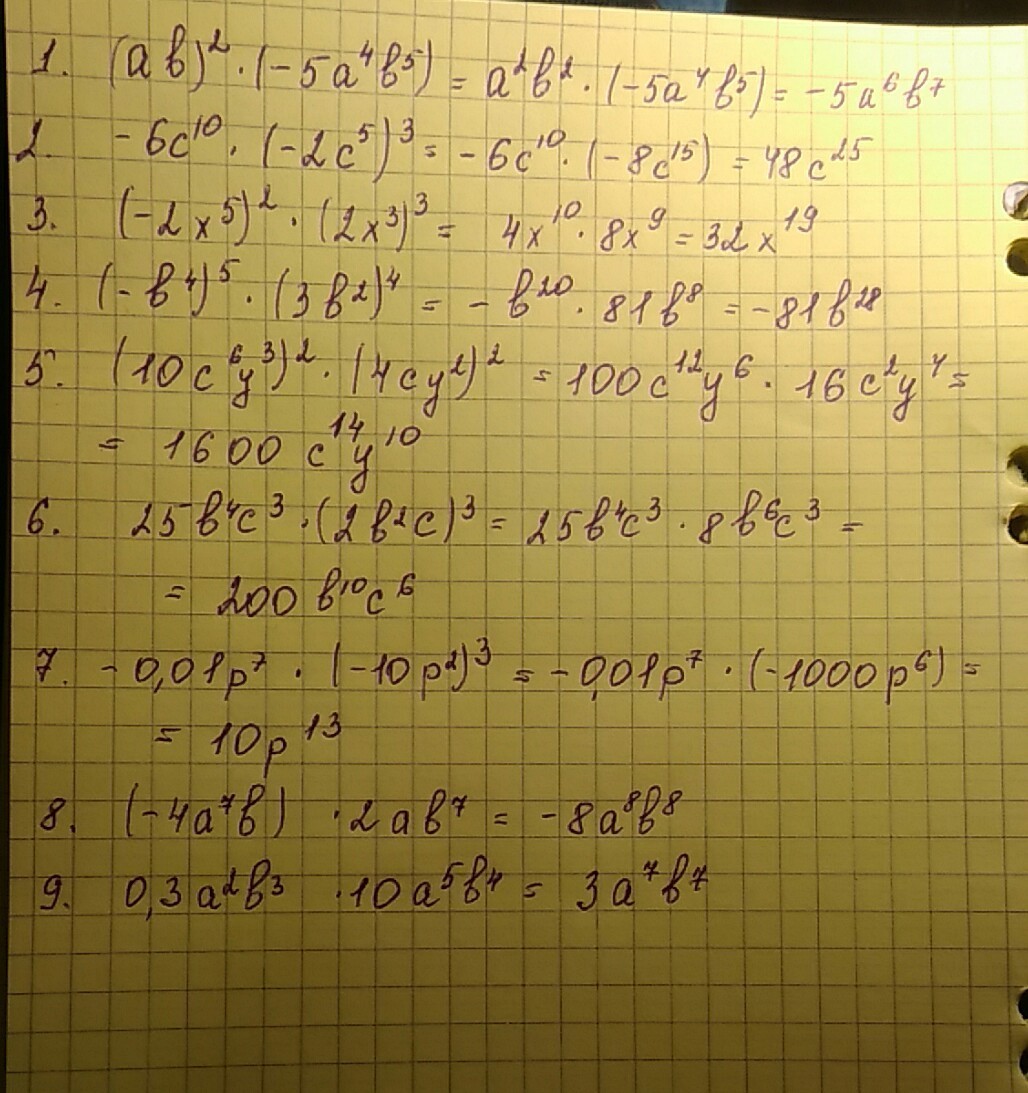 1. (ab)² · (-5a⁴b⁵) = a²b² · (-5a⁴b⁵) = -5a⁶b⁷
2. -6c¹⁰ · (-2c⁵)³ = -6c¹⁰ · (-8c¹⁵) = 48c²⁵
3. (-2x⁵)² · (2x³)³ = 4x¹⁰ · 8x⁹ = 32x¹⁹
4. (-b⁴)⁵ · (3b²)⁴ = -b²⁰ · 81b⁸ = -81b²⁸
5. (10c⁶y³)² · (4cy²)² = 100c¹²y⁶ · 16c²y⁴ =
= 1600c¹⁴y¹⁰
6. 25b⁴c³ · (2b²c)³ = 25b⁴c³ · 8b⁶c³ =
= 200b¹⁰c⁶
7. -0,01p⁷ · (-10p²)³ = -0,01p⁷ · (-1000p⁶) =
= 10p¹³
8. (-4a⁷b) · 2ab⁷ = -8a⁸b⁸
9. 0,3a²b³ · 10a⁵b⁴ = 3a⁷b⁷